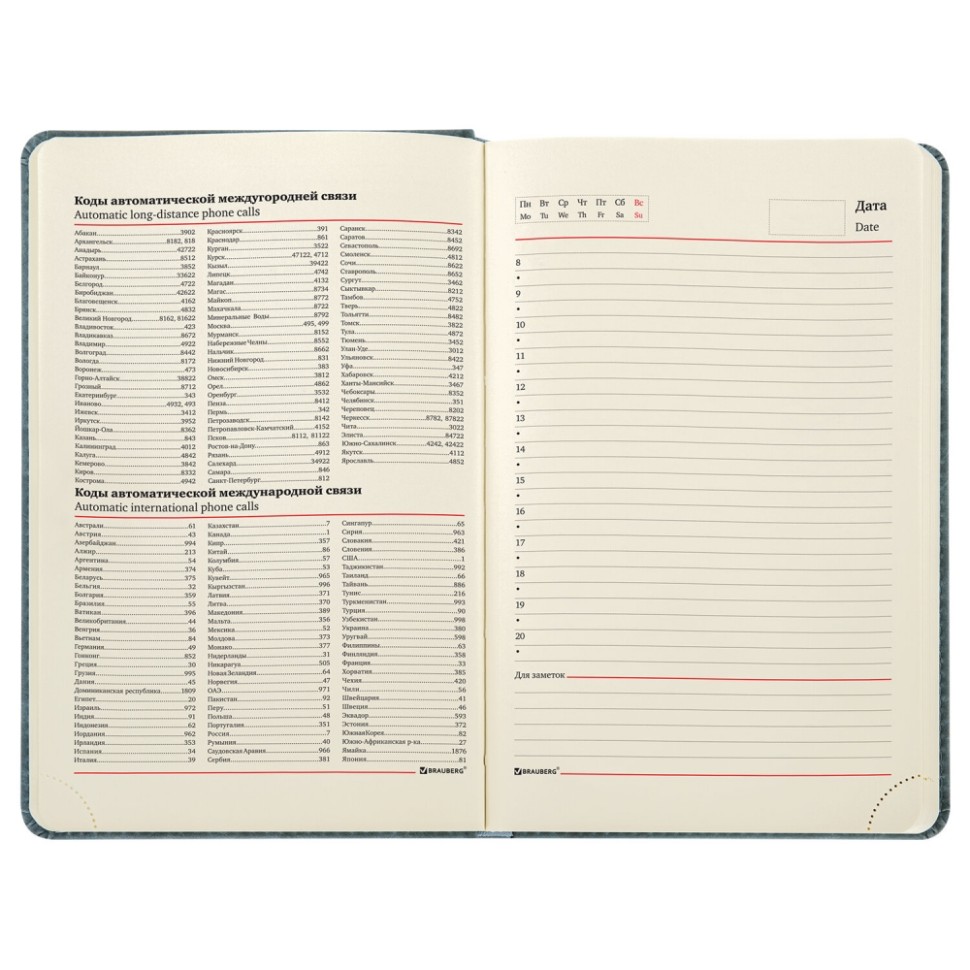 Коды автоматической междугородней связи
Automatic long-distance phone calls
Абакан 3902
Архангельск 8182, 818
Анадырь 42722
Астрахань 8512
Барнаул 3852
Байконур 33622
Белгород 4722
Биробиджан 42622
Благовещенск 4162
Брянск 4832
Великий Новгород 8162, 81622
Владивосток 423
Владикавказ 8672
Владимир 4922
Волгоград 8442
Вологда 8172
Воронеж 473
Горно-Алтайск 38822
Грозный 8712
Екатеринбург 343
Иваново 4932, 493
Ижевск 3412
Иркутск 3952
Йошкар-Ола 8362
Казань 843
Калининград 4012
Калуга 4842
Кемерово 3842
Киров 8332
Кострома 4942
Красноярск 391
Краснодар 861
Курган 3522
Курск 47122, 4712
Кызыл 39422
Липецк 4742
Магадан 4132
Магас 8734
Майкоп 8772
Махачкала 8722
Минеральные Воды 8792
Москва 495, 499
Мурманск 8152
Набережные Челны 8552
Нальчик 8662
Нижний Новгород 831
Новосибирск 383
Омск 3812
Орел 4862
Оренбург 3532
Пенза 8412
Пермь 342
Петрозаводск 8142
Петропавловск-Камчатский 4152
Псков 8112, 81122
Ростов-на-Дону 863
Рязань 4912
Салехард 34922
Самара 846
Санкт-Петербург 812
Саранск 8342
Саратов 8452
Севастополь 8692
Смоленск 4812
Сочи 8622
Ставрополь 8652
Сургут 3462
Сыктывкар 8212
Тамбов 4752
Тверь 4822
Тольятти 8482
Томск 3822
Тула 4872
Тюмень 3452
Улан-Уде 3012
Ульяновск 8422
Уфа 347
Хабаровск 4212
Ханты-Мансийск 3467
Чебоксары 8352
Челябинск 351
Череповец 8202
Черкесск 8782, 87822
Чита 3022
Элиста 84722
Южно-Сахалинск 4242, 42422
Якутск 4112
Ярославль 4852
Коды автоматической международной связи
Automatic international phone calls
Австрали 61
Австрия 43
Азербайджан 994
Алжир 213
Аргентина 54
Армения 374
Беларусь 375
Бельгия 32
Болгария 359
Бразилия 55
Ватикан 396
Великобритания 44
Венгрия 36
Вьетнам 84
Германия 49
Гонконг 852
Греция 30
Грузия 995
Дания 45
Доминиканская республика 1809
Египет 20
Израиль 972
Индия 91
Индонезия 62
Иордания 962
Ирландия 353
Испания 34
Италия 39
Казахстан 7
Канада 1
Кипр 357
Китай 86
Колумбия 57
Куба 53
Кувейт 965
Кыргызстан 996
Латвия 371
Литва 370
Македония 389
Мальта 356
Мексика 52
Молдова 373
Монако 377
Нидерланды 31
Никарагуа 505
Новая Зеландия 64
Норвегия 47
ОАЭ 971
Пакистан 92
Перу 51
Польша 48
Португалия 351
Россия 7
Румыния 40
Саудовская Аравия 966
Сербия 381
Сингапур 65
Сирия 963
Словакия 421
Словения 386
США 1
Таджикистан 992
Таиланд 66
Тайвань 886
Тунис 216
Туркменистан 993
Турция 90
Узбекистан 998
Украина 380
Уругвай 598
Филиппины 63
Финляндия 358
Франция 33
Хорватия 385
Чехия 420
Чили 56
Швейцария 41
Швеция 46
Эквадор 593
Эстония 372
Южная Корея 82
Южно-Африканская р-ка 27
Ямайка 1876
Япония 81
BRAUBERG®
Пн Вт Ср Чт Пт Сб Вс
Mo Tu We Th Fr Sa Su
Дата
Date
8
9
10
11
12
13
14
15
16
17
18
19
20
Для заметок
BRAUBERG®